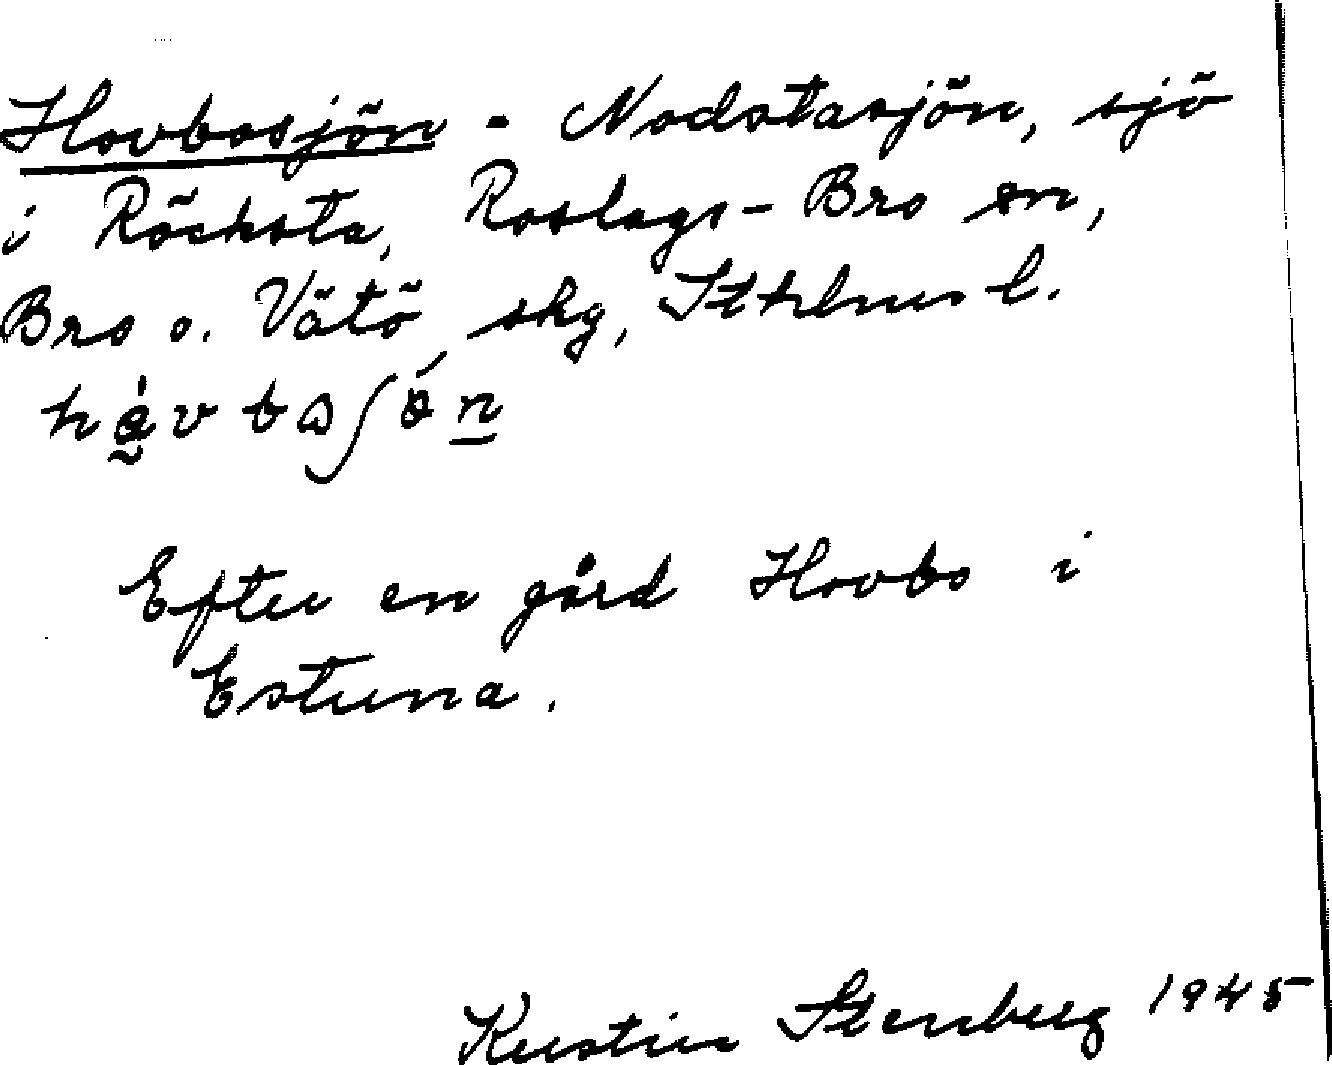 Hovbosjön = Nodstasjön, sjö
i Röcksta, Roslags-Bro sn,
Bro o. Vätö skg, Sthlms l.
hàvbωʃǿn
Efter en gård Hovbo i
Estuna.
Kerstin Stenberg 1945